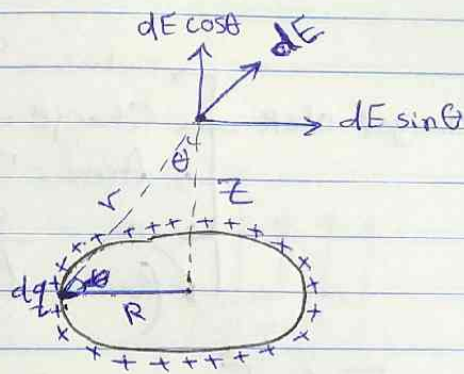 dE cosθ
dE
dE sinθ
θ
r
z
dq
R